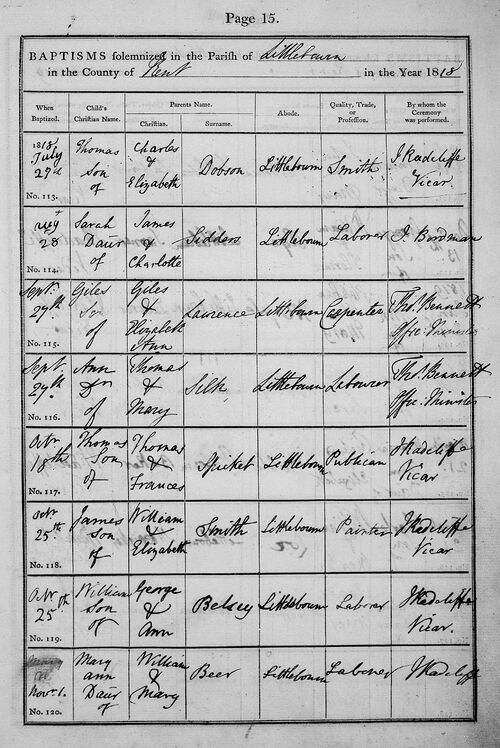 Page 15.
BAPTISMS solemnized in the Parish of Littlebourn
in the County of Kent in the Year 1818
When Baptized. Child's Christian Name. Parents Name. Christian. Surname. Abode. Quality, Trade, or Profession. By whom the Ceremony was performed.
1818
July Thomas Charles
Son & Dobson Littlebourn Smith J Radcliffe
of Elizabeth Vicar.
No. 113.
Sarah James
28 Daur & Sidders Littlebourn Laborer J. Bordman
of Charlotte
No. 114.
Sept. Giles Giles
27th Son & Lawrence Littlebourn Carpenter Thos. Bennett
of Elizabeth Offic. Minister
Ann
No. 115.
Sept. Ann Thomas
27th Dr & Silk Littlebourn Labourer Thos. Bennett
of Mary Offic. Minister
No. 116.
Octr Thomas Thomas
18th Son & Spicket Littlebourn Publican J Radcliffe
of Frances Vicar
No. 117.
Octr James William
25th Son & Smith Littlebourn Painter J Radcliffe
of Elizabeth Vicar
No. 118.
Octr William George
25th Son & Belsey Littlebourn Laborer J Radcliffe
of Ann Vicar.
No. 119.
Mary William
ann & Beer Littlebourn Laborer J Radcliffe
Novr 1. Daur of Mary
No. 120.